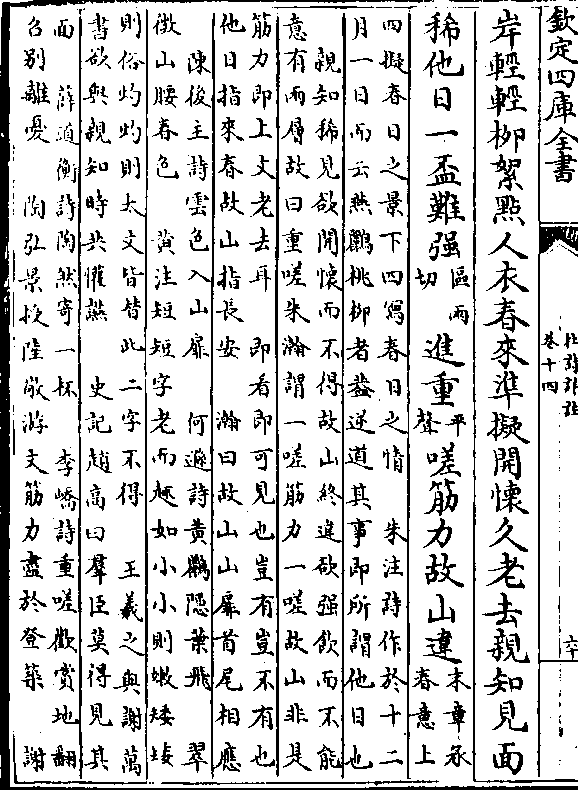 欽定四庫全書
杜詩詳註
卷十四
六十
岸輕輕柳絮點人衣春來準擬開懷久老去親知見面
稀他日一盃難强區兩切進重平聲嗟筋力故山違末章承春意上
四擬春日之景下四寫春日之情 朱注詩作於十二
月一日而云燕鸝桃柳者蓋逆道其事即所謂他日也
親知稀見欲開懷而不得故山終違欲强飲而不能
意有兩層故曰重嗟朱瀚謂一嗟筋力一嗟故山非是
筋力即上文老去耳 即看即可見也豈有豈不有也
他日指來春故山指長安 瀚曰故山山扉首尾相應
陳後主詩雲色入山扉 何遜詩黃鸝隱葉飛 翠
微山腰春色 黃注短短字老而趣如小小則嫩矮矮
則俗灼灼則太文皆替此二字不得 王羲之與謝萬
書欲與親知時共懽讌 史記趙高曰羣臣莫得見其
面 薛道衡詩陶然寄一杯 李嶠詩重嗟歡賞地翻
召別離憂 陶弘景授陸敬游文筋力盡於登築 謝